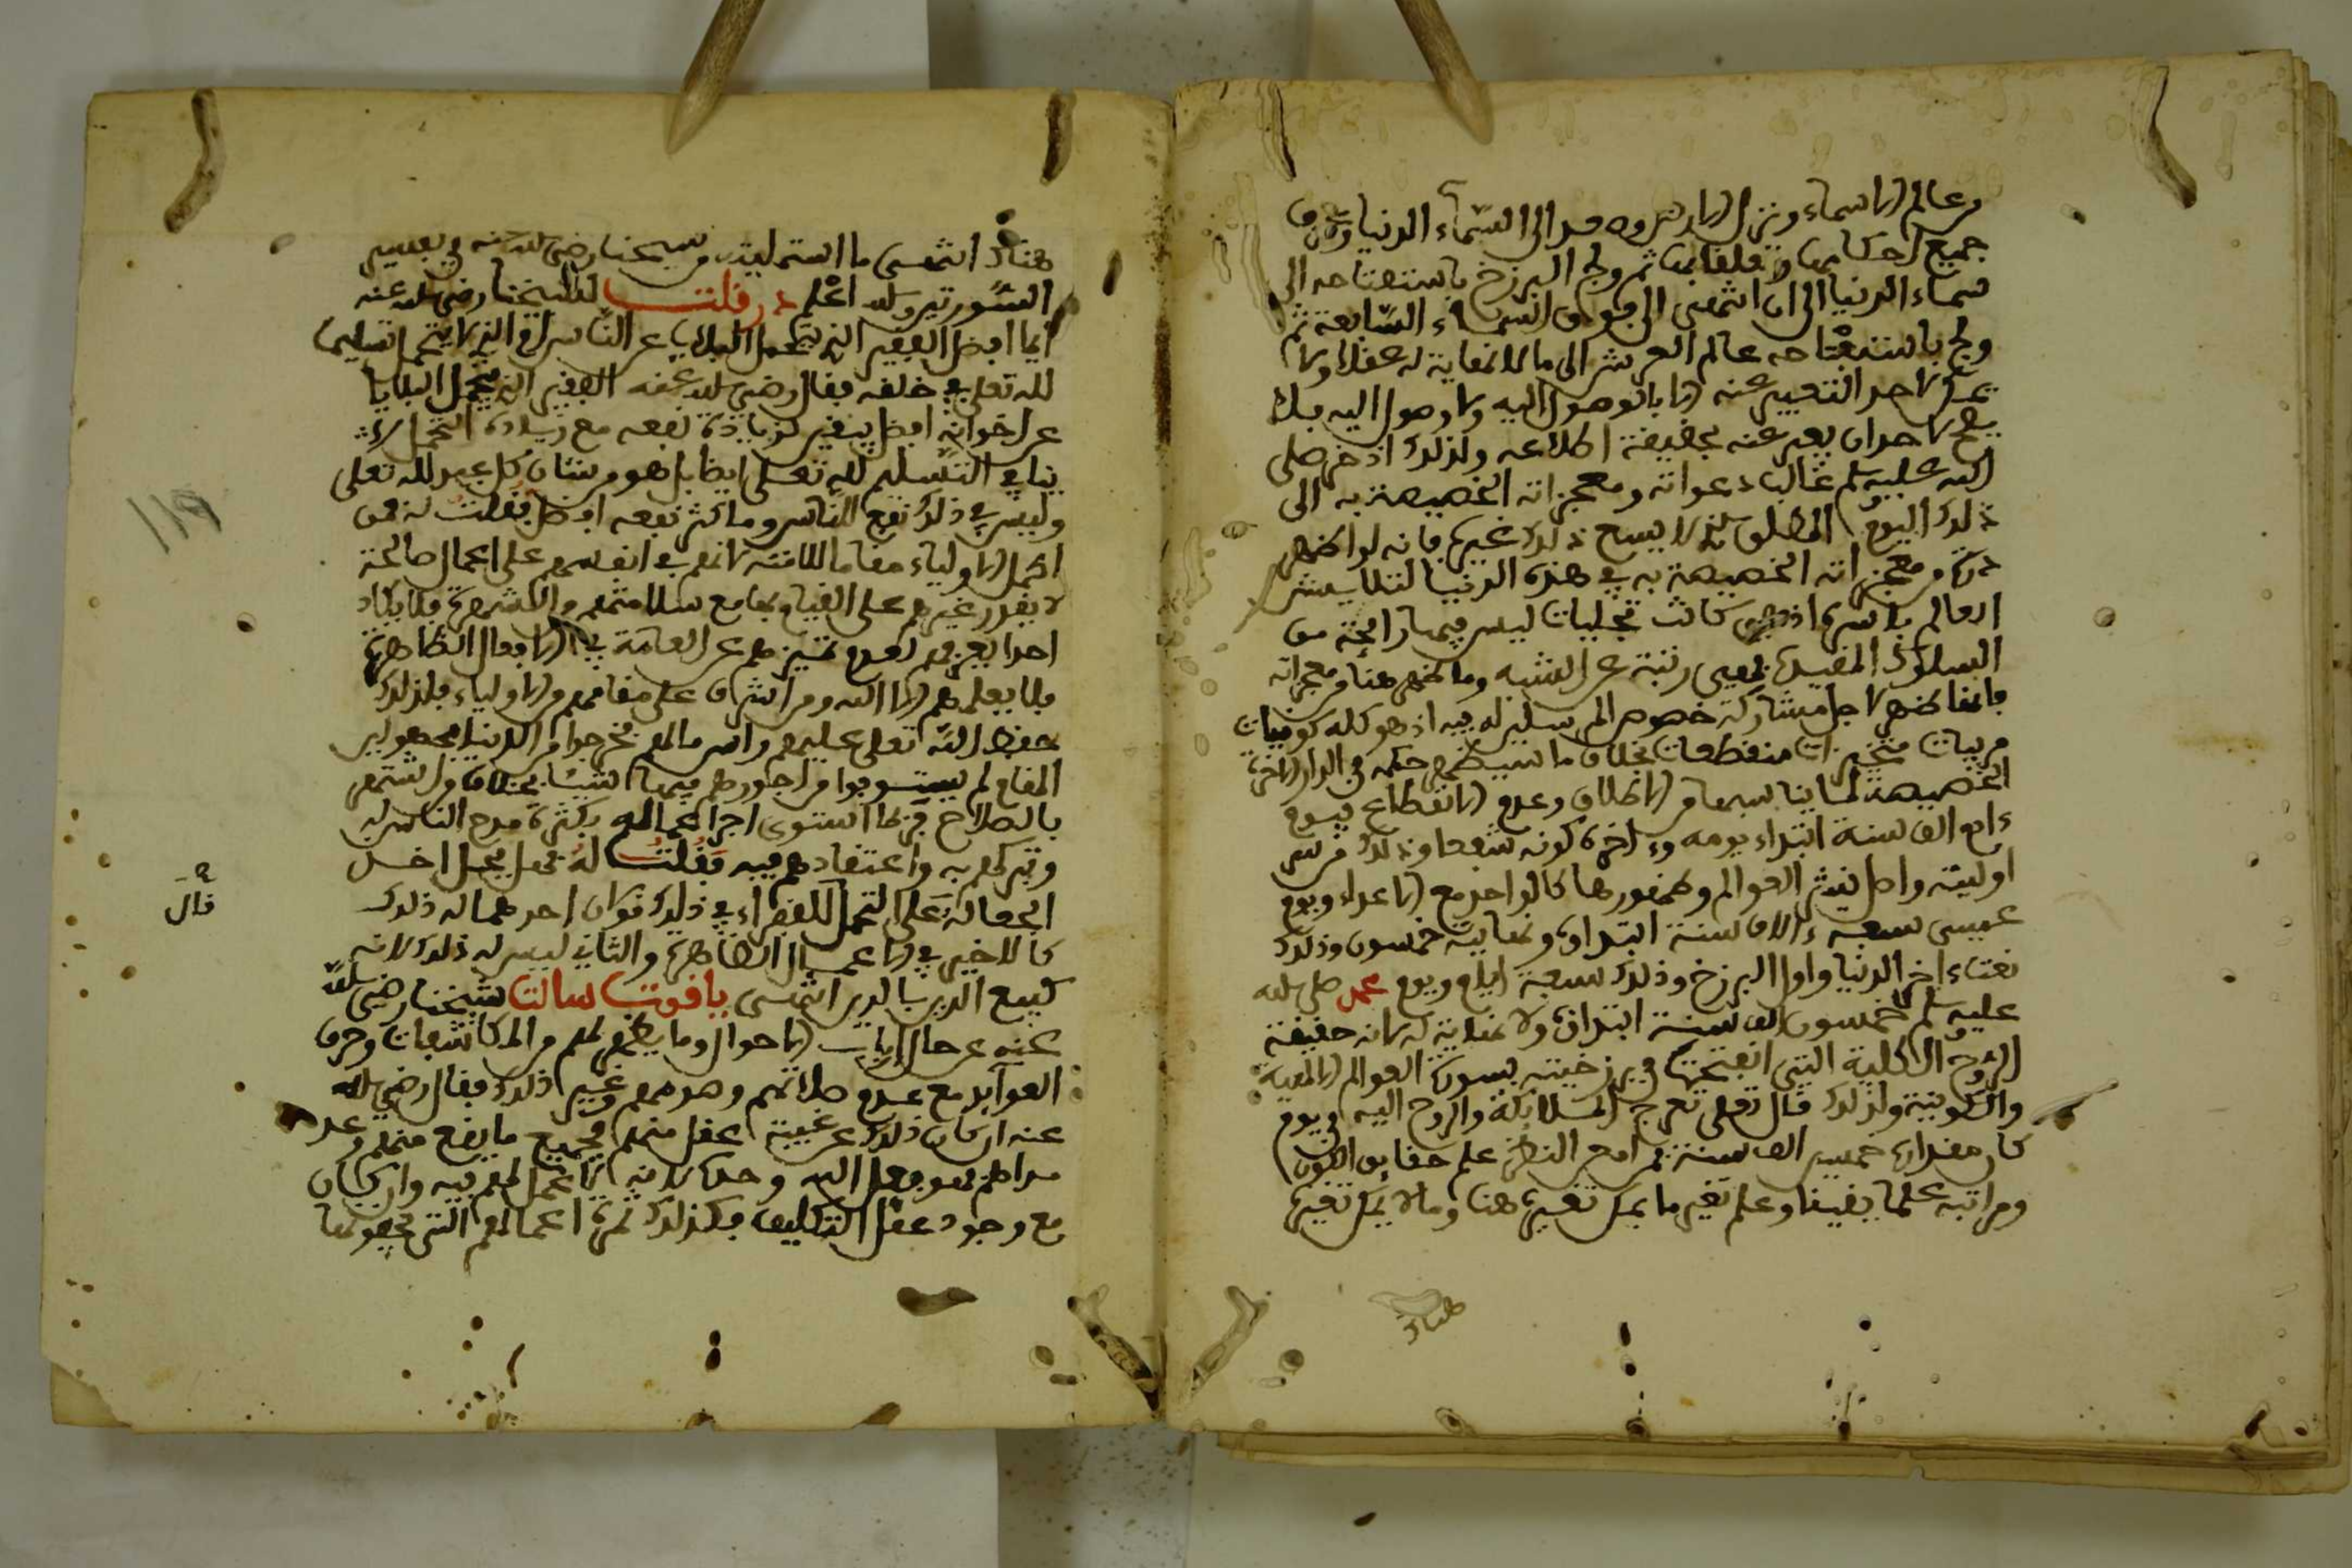 من عالم الاسماء وتنزل الامر من وحد الى السماء الدنيا وعرف
جميع احكامها وتعلقاتها ثم ولج البرزخ باستفتاحه الى
سماء الدنيا الى ان انتهى الى فوق السماء السابعة ثم
ولج باستفتاحه عالم العرش الى ما لا نهاية له عقلا ولا
يمكن لاحد التعبير عنه الا بالوصول اليه ولا وصول اليه فلا
يصح لاحد ان يعبر عنه بحقيقة اطلاعه ولذلك اذخر صلى
الله عليه وسلم غالب دعواته ومعجزاته الخصيصة به الى
ذلك اليوم المطلق اذ لا يسع ذلك غيره فانه لو اظهر
ذرة من معجزاته الخصيصة به في هذه الدنيا لتلاشى
العالم باسره اذ هي كانت تجليات ليس فيها رائحة من
السلوك المقيد بمعنى رتبة عن الشبه وما ظهر هنا من معجزاته
فانما ظهر لاجل مشاركة خصوص المرسلين له فيه اذ هو كله كونيات
مرتبات متحيزات منقطعات بخلاف ما سيظهر حكمه في الدار الاخرة
الخصيصة لما يناسبها من الاطلاق وعدم الانقطاع فيوم
ءادم الف سنة ابتداء يومه وءاخره كونه شفعا وذلك من سر
اوليته واصل نشر العوالم وظهورها كالواحد مع الاعداد ويوم
عيسى سبعة ءالاف سنة ابتداؤه ونهايته خمسون وذلك
نعتاء اخر الدنيا واول البرزخ وذلك سبعة ايام ويوم محمد صلى الله
عليه وسلم خمسون الف سنة ابتداؤه ولا نهاية له لانه حقيقة
الروح الكلية التي انفتحت في برزخيته بسور العوالم الالهية
والكونية ولذلك قال تعلى تعرج الملائكة والروح اليه في يوم
كان مقداره خمسين الف سنة فمن امعن النظر علم حقايق الكون
ومراتبه علما يقينا وعلم تغير ما يمكن تغييره هنا وما لا يمكن تغييره
هناك
هناك انتهى ما استمليته من شيخنا رضي الله عنه في تفسير
السورتين والله اعلم در قلت لشيخنا رضي الله عنه
ايما افضل الفقير الذي يتحمل البلايا عن الناس او الذي لا يتحمل تسليما
لله تعلى في خلقه فقال رضي الله عنه الفقير الذي يتحمل البلايا
عن اخوانه افضل بيقين لزيادة نفعه مع زيادة التحمل لا
ينافي التسليم لله تعلى ايضا بل هو من شان كل عبد لله تعلى
وليس في ذلك نفع للناس وما كثر نفعه افضل فقلت له فمن
اكمل الاولياء مقاما الملامتية لانهم في انفسهم على اعمال صالحة
لا يقدر غيرهم على القيام بها مع سلامتهم من الشهرة فلا يكاد
احد يعرفهم لعدم تميزهم عن العامة في الافعال الظاهرة
فلا يعلمهم الا الله ومن اشرف على مقامهم من الاولياء فلذلك
حفظ الله تعلى عليهم راس مالهم فخرجوا من الدنيا مجهولين
المقام لم يستوفوا من اجورهم فيها شيئا بخلاف من اشتهر
بالصلاح فربما استوفى اجر اعماله بكثرة مدح الناس له
وتبركهم به واعتقادهم فيه فقلت له فهل يحل اخذ
الجعالة على التحمل للفقراء في ذلك قولان احدهما له ذلك
كالاخير في الاعمال الظاهرة والثاني ليس له ذلك لانه
كبيع الدين بالدين انتهى ياقوت سالت شيخنا رضي الله
عنه عن حال ارباب الاحوال وما يظهر لهم من المكاشفات وخرق
العوايد مع عدم صلاتهم وصومهم وغير ذلك فقال رضي الله
عنه ان كان ذلك عن غيبة عقل منهم فجميع ما يقع منهم وعد
مراطهم فهو فعل الله وحده لانه لا عمل لهم فيه وان كان
مع وجود عقل التكليف فكذلك ثمرة اعمالهم التي فعلوها
قال
119